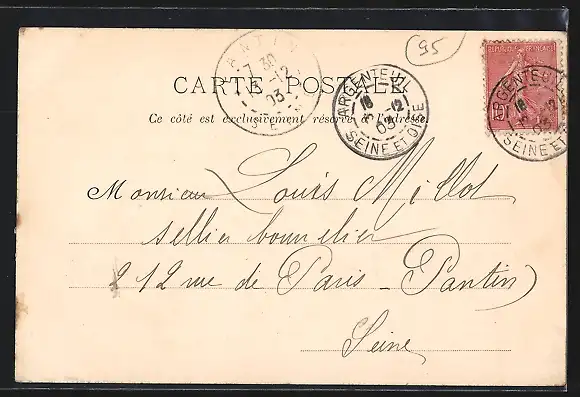 95
CARTE POSTALE
Ce côté est exclusivement réservé à l'adresse
PANTIN
7 30
12
03
SEINE
ARGENTEUIL
18
5 12
03
SEINE ET OISE
REPUBLIQUE FRANÇAISE
15
ARGENTEUIL
18
5 12
03
SEINE ET OISE
Monsieur Louis Millot
sellier bourrelier
212 rue de Paris - Pantin
Seine